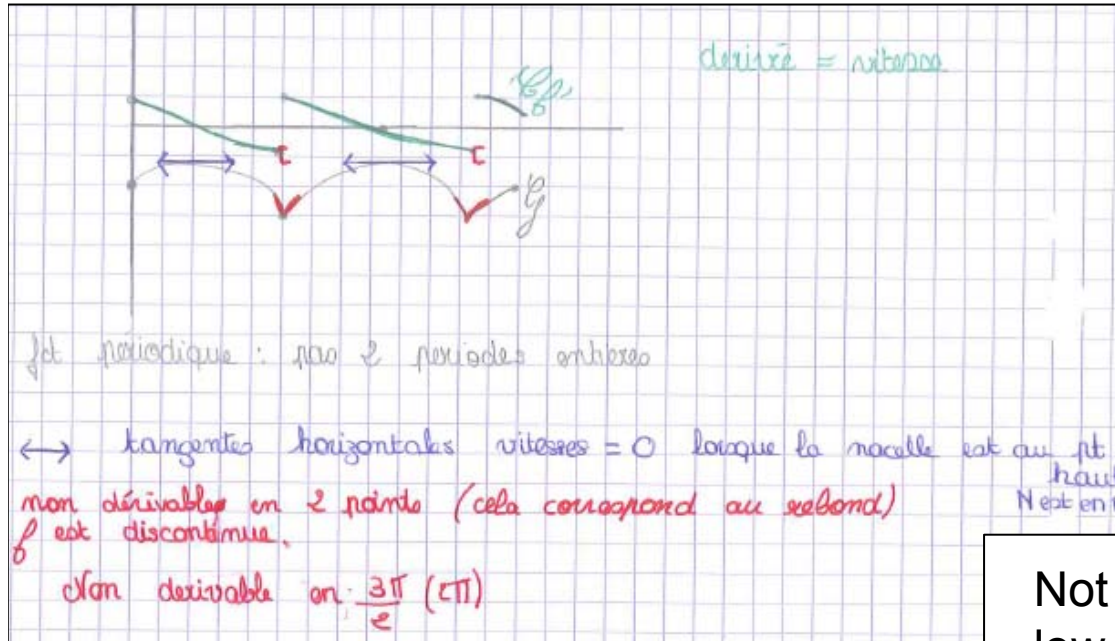 derivé = vitesse
Cf'
Cf
fct périodique : pas 2 periodes entières
↔ tangentes horizontales vitesses = 0 lorsque la nacelle est au pt
haut
N est en
non dérivables en 2 points (cela correspond au rebond)
f est discontinue.
Non derivable en : 3π/2 (2π)
Not
low